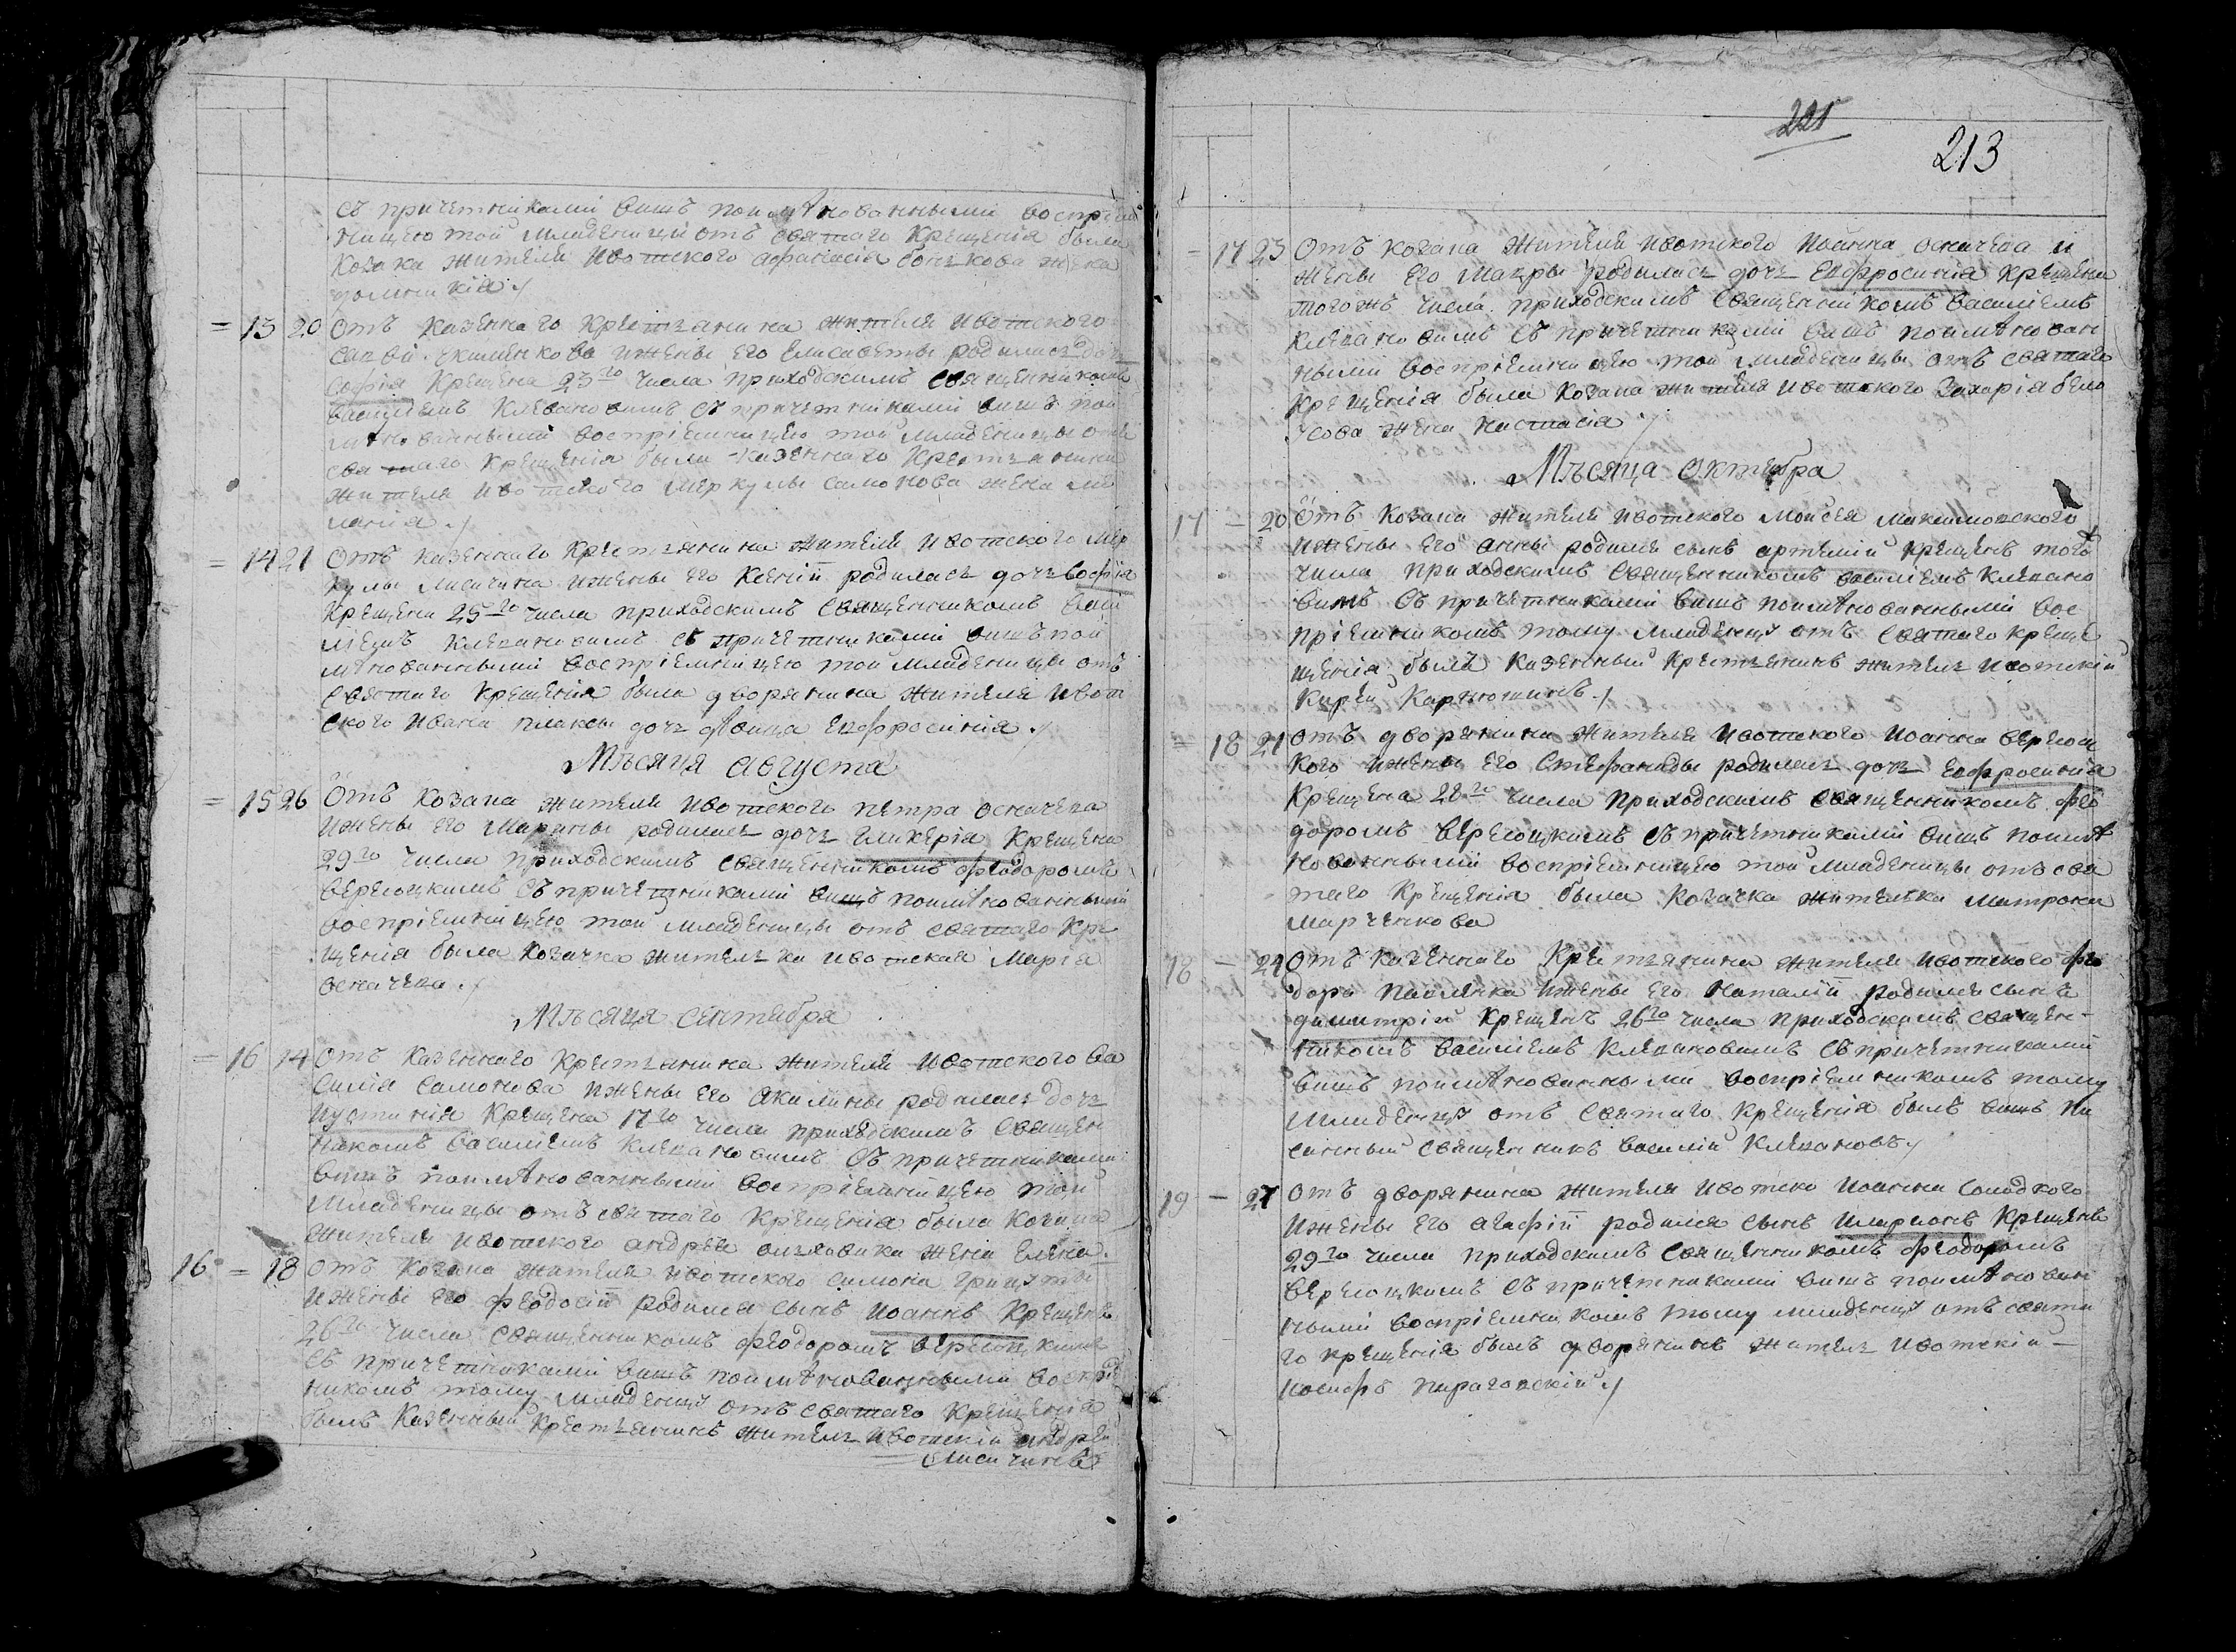 съ причетниками вишъ поимѣнованными воспріем
ницею той младеницы отъ святаго Крещенія была
Козака жителя Ивотского Афанасія жена
домникія ./
= 13 20 Отъ Казеннаго Крестьянина жителя Ивотского
Савви Якименкова ижены его Елисаветы родилась доч
софія Крещена 23го числа приходскимъ священникомъ
василіемъ Клевановимъ съ причетниками вишъ пои
мѣнованными воспріемницею той младеницы отъ
святаго Крещенія была Казеннаго Крестьянина
жителя Ивотского меркулы самонова жена ме
ланія ./
= 14 21 Отъ Казеннаго Крестьянина жителя Ивотского мер
кулы лисичина ижены его Ксеніи родилась дочь софія
Крещена 25го числа приходскимъ священникомъ васи
ліемъ Клевановимъ съ причетниками вишъ пои
мѣнованными воспріемницею той младеницы отъ
святаго Крещенія была дворянина жителя Ивот
ского Ивана плаксы дочь дѣвица Евфросинія ./
Мѣсяця Августа
= 15 26 Отъ Козака жителя Ивотского петра осмачека
ижены его Марины родилась дочь Гликерія Крещена
29го числа приходскимъ священникомъ феодоромъ
верелоцкимъ съ причетниками вишъ поимѣнованными
воспріемницею той младеницы отъ святаго Кре
щенія была Козачка жителька Ивотская Марія
осмачека ./
Мѣсяця Сентября
= 16 14 Отъ Казеннаго Крестьянина жителя Ивотского Ва
силія Самонова ижены его Акилины родилась дочь
Иустинія Крещена 17го числа приходскимъ священ
никомъ василіемъ Клевановимъ съ причетниками
вишъ поимѣнованными воспріемницею той
младеницы отъ святаго Крещенія была Козака
жителя Ивотского андрея жена Елена.
16 = 18 Отъ Козака жителя Ивотского Симона
ижены его феодосіи родился сынъ Иоаннъ Крещенъ
26го числа священникомъ феодоромъ верелоцкимъ
съ причетниками вишъ поимѣнованными воспріем
никомъ тому младенцу отъ святаго Крещенія
былъ Казенный Крестьянинъ житель Ивотскій андрей
Лисичинъ
221
213
= 17 23 Отъ козака жителя Ивотского Иоанна осмачека и
жены его Мавры родилась дочь Евфросинія Крещена
тогожъ числа приходскимъ священникомъ василіемъ
Клевановимъ съ причетниками вишъ поимѣнован
ными воспріемницею той младеницы отъ святаго
Крещенія была Козака жителя Ивотского Захарія бело
усова жена Настасія ./
Мѣсяца Октября
17 — 20 Отъ Козака жителя Ивотского Моисея Максимовского
ижены его Анны родился сынъ артемій Крещенъ тогож
числа приходскимъ священникомъ василіемъ Клевано
вимъ съ причетниками вишъ поимѣнованными вос
пріемникомъ тому младенцу отъ святаго креще
щенія былъ Казенный Крестьянинъ житель Ивотскій
Кирей Карпюшинъ ./
= 18 21 Отъ дворянина жителя Ивотского Иоанна верелоц
кого ижены его Стефаниды родилась дочь Евфросинія
Крещена 28го числа приходскимъ священникомъ фео
доромъ верелоцкимъ съ причетниками вишъ поимѣ
нованными воспріемницею той младеницы отъ свя
таго Крещенія была Козачка жителька матрона
марченкова
18 — 24 Отъ Казеннаго Крестьянина жителя Ивотского фео
дора павленка ижены его Наталіи родился сынъ
димитрій Крещенъ 26го числа приходскимъ священ-
никомъ василіемъ Клевановимъ съ причетниками
вишъ поимѣнованными воспріемникомъ тому
младенцу отъ святаго Крещенія былъ вишъ пи
санный священникъ василій Клевановъ ./
19 — 27 Отъ дворянина жителя Ивотско Иоанна
ижены его агафіи родился сынъ Иларионъ Крещенъ
29го числа приходскимъ священникомъ феодоромъ
верелоцкимъ съ причетниками вишъ поимѣнован
ными воспріемникомъ тому младенцу отъ свята
го крещенія былъ дворянинъ житель Ивотскій —
Иосифъ пироговскій ./